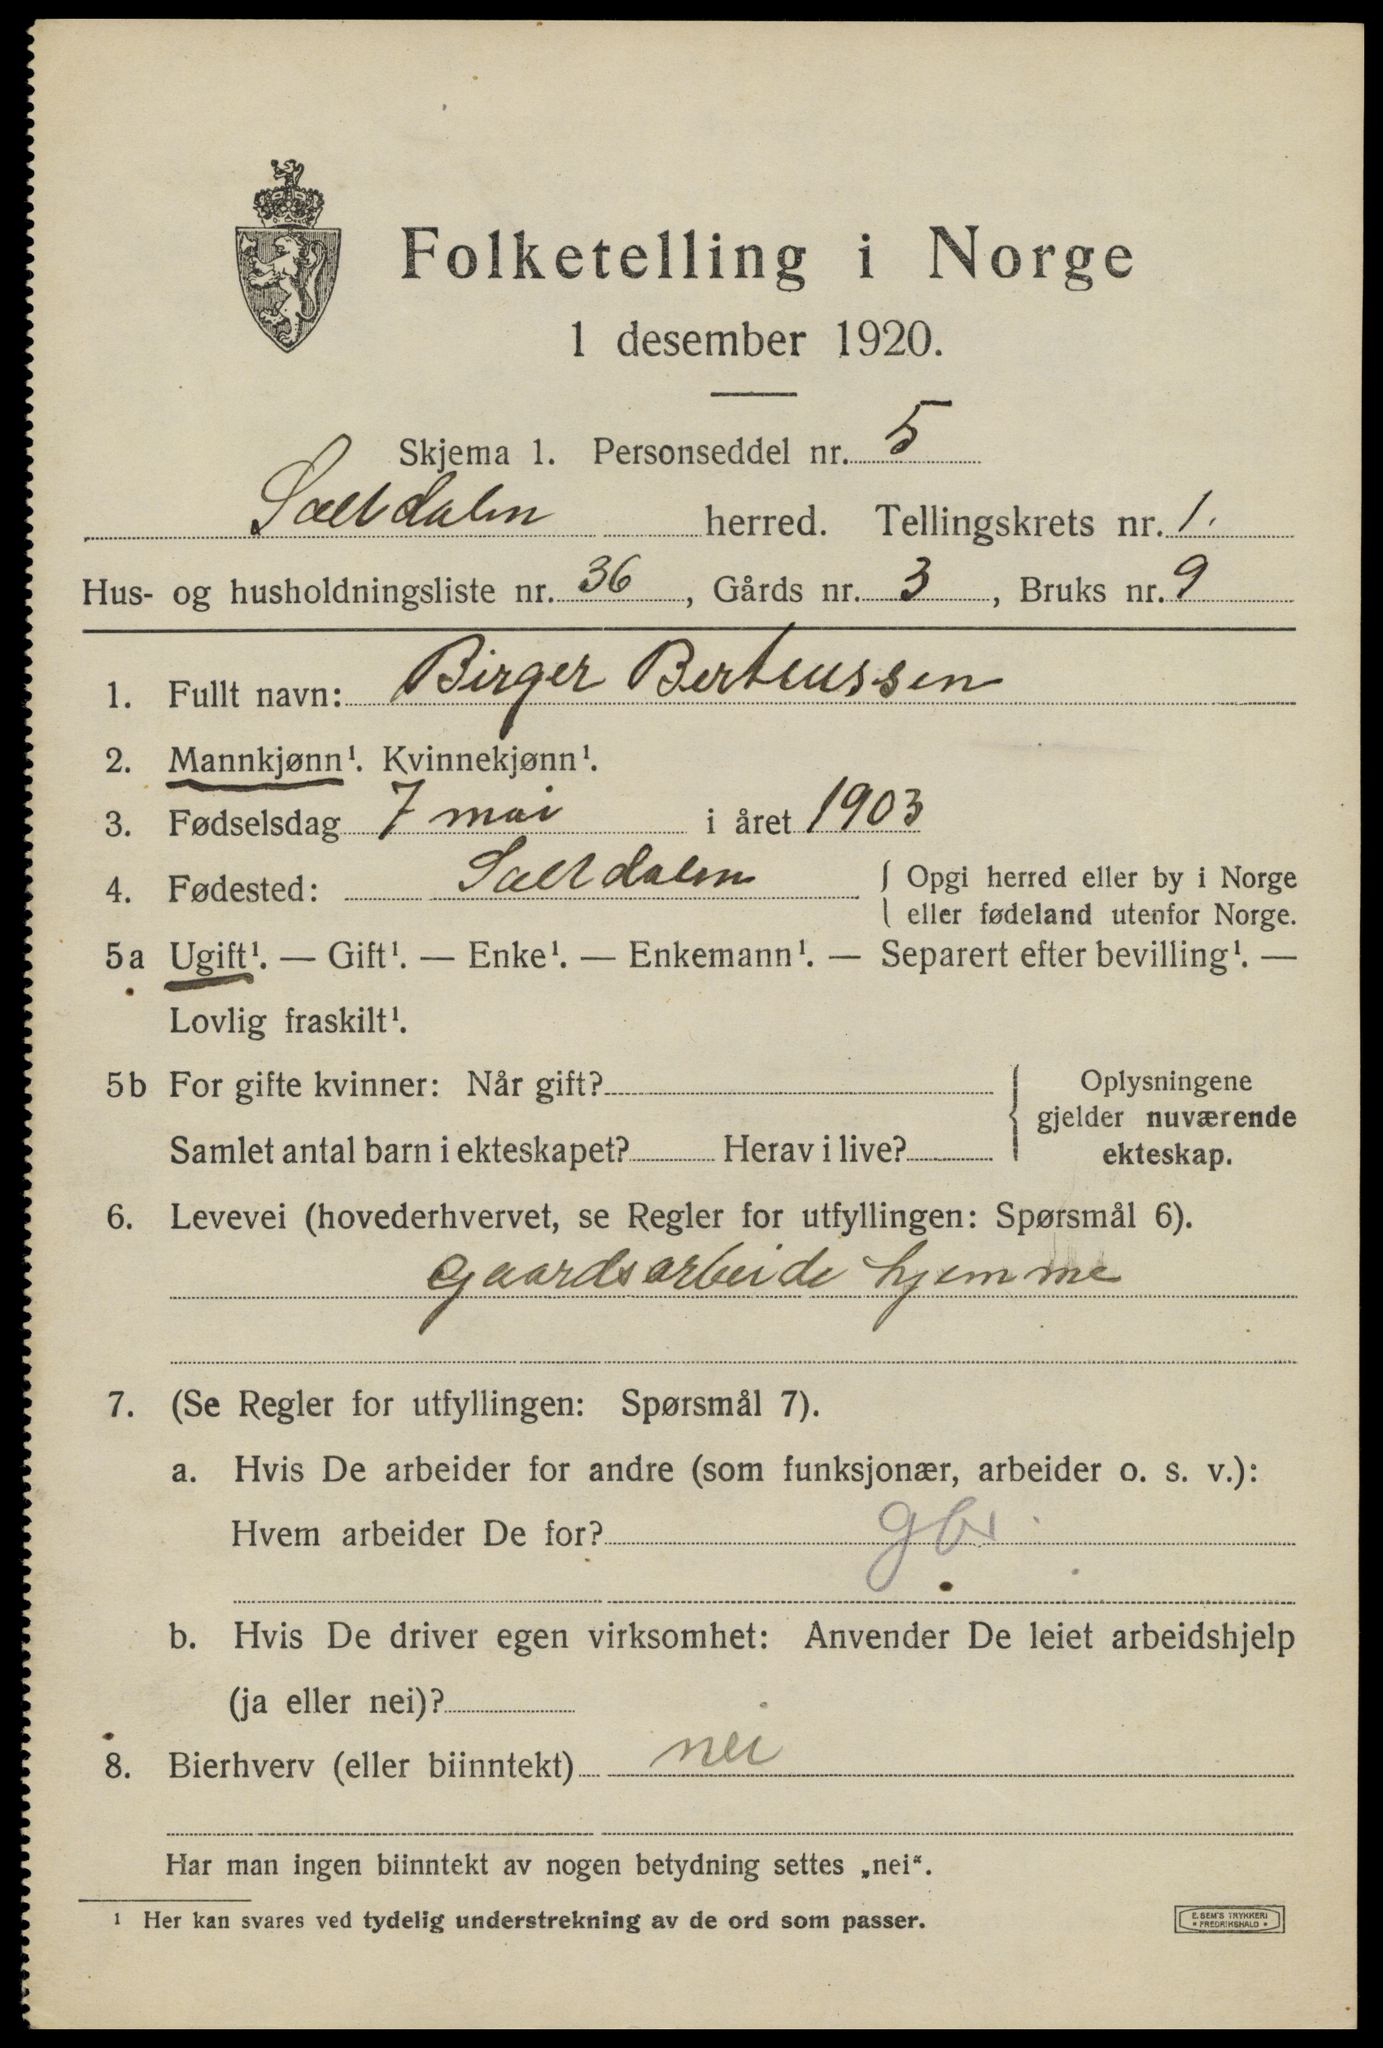 Folketelling i Norge
1 desember 1920.
Skjema 1. Personseddel nr. 5
Saltdalen herred. Tellingskrets nr. 1.
Hus- og husholdningsliste nr. 36, Gårds nr. 3, Bruks nr. 9
1. Fullt navn: Birger Berteussen
2. Mannkjønn¹. Kvinnekjønn¹.
3. Fødselsdag 7 mai i året 1903
4. Fødested: Saltdalen { Opgi herred eller by i Norge
eller fødeland utenfor Norge.
5a Ugift¹. — Gift¹. — Enke¹. — Enkemann¹. — Separert efter bevilling¹. —
Lovlig fraskilt¹.
5b For gifte kvinner: Når gift?
Samlet antal barn i ekteskapet? Herav i live?
Oplysningene
gjelder nuværende
ekteskap.
6. Levevei (hovederhvervet, se Regler for utfyllingen: Spørsmål 6).
Gaardsarbeide hjemme
7. (Se Regler for utfyllingen: Spørsmål 7).
a. Hvis De arbeider for andre (som funksjonær, arbeider o. s. v.):
Hvem arbeider De for?
b. Hvis De driver egen virksomhet: Anvender De leiet arbeidshjelp
(ja eller nei)?
8. Bierhverv (eller biinntekt) nei
Har man ingen biinntekt av nogen betydning settes „nei“.
¹ Her kan svares ved tydelig understrekning av de ord som passer.
E. SEM'S TRYKKERI
• FREDRIKSHALD •